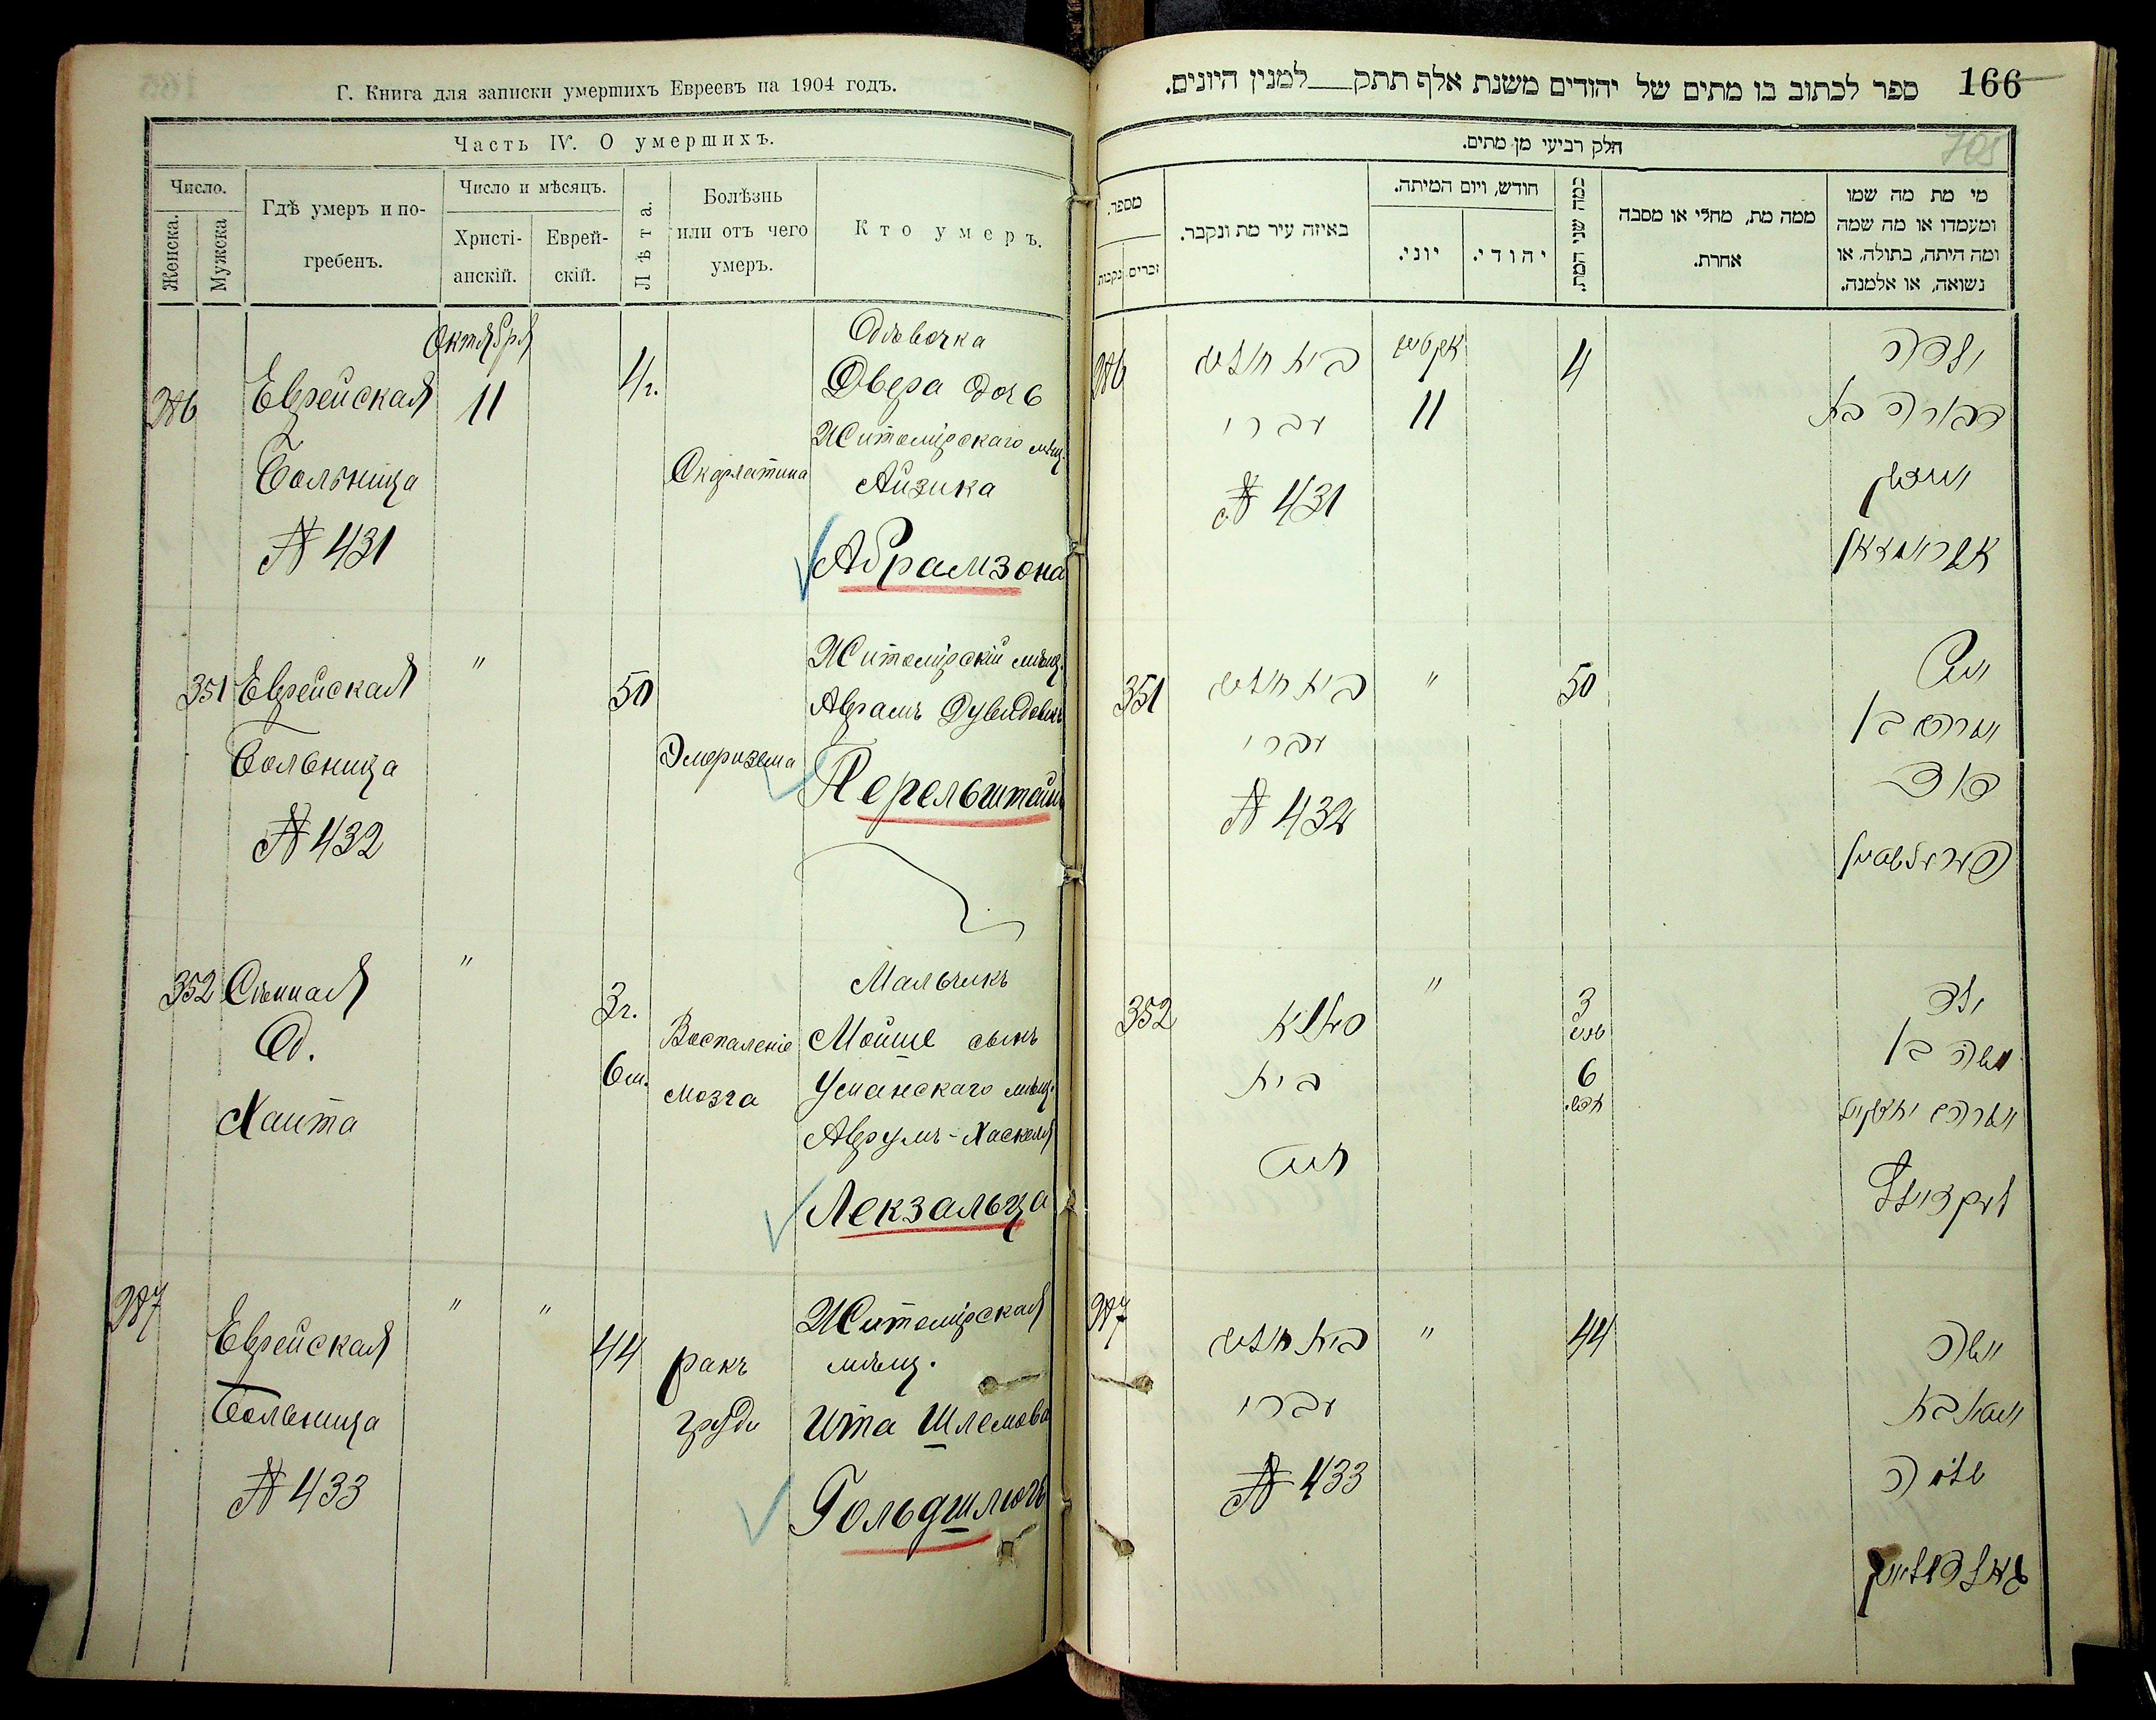 Г. Книга для записки умершихъ Евреевъ на 1904 годъ.
Часть IV. О умершихъ.
Число.
Женска.
Мужска
Гдѣ умеръ и по-
гребенъ.
Число и мѣсяцъ.
Христі-
анскій.
Еврей-
скій.
Лѣта.
Болѣзнь
или отъ чего
умеръ.
Кто умеръ.
Октября
Еврейская
Больница
№ 431
11
4 г.
Скарлатина
Дѣвочка
Двера дочь
Житомірскаго мѣщ.
Айзика
Абрамзона
351
Еврейская
Больница
№ 432
"
50
Житомірскій мѣщ.
Аврамъ
Перельштейн
352
Сѣнная
Хаита
"
3 г.
6 м.
Воспаленіе
мозга
Мальчикъ
Мойше сынъ
Уманскаго мѣщ.
Аврумъ-Хаскеля
Лекзальца
Еврейская
Больница
№ 433
"
"
44
ракъ
груди
Житомірская
мѣщ.
Ита Шлемова
166
ספר לכתוב בו מתים של יהודים משנת אלף תתק__למנין היונים.
חלק רביעי מן מתים.
מספר.
זכרים
נקבות
באיזה עיר מת ונקבר.
חודש, ויום המיתה.
יוני.
יהודי.
כמה שני המת.
ממה מת, מחלי או מסבה
אחרת.
מי מת מה שמו
ומעמדו או מה שמה
ומה היתה, בתולה, או
נשואה, או אלמנה.
בית חולים
עברי
№ 431
11
4
ילדה
דבורה בת
אייזיק
אבראמזאן
351
בית חולים
עברי
№ 432
"
50
אברהם בן
דוד
פערעלשטיין
352
בית
"
3
שנים
6
חדש׳
ילד
משה בן
אברהם יחזקאל
בית חולים
עברי
№ 433
"
44
אשה
איטא בת
שלמה